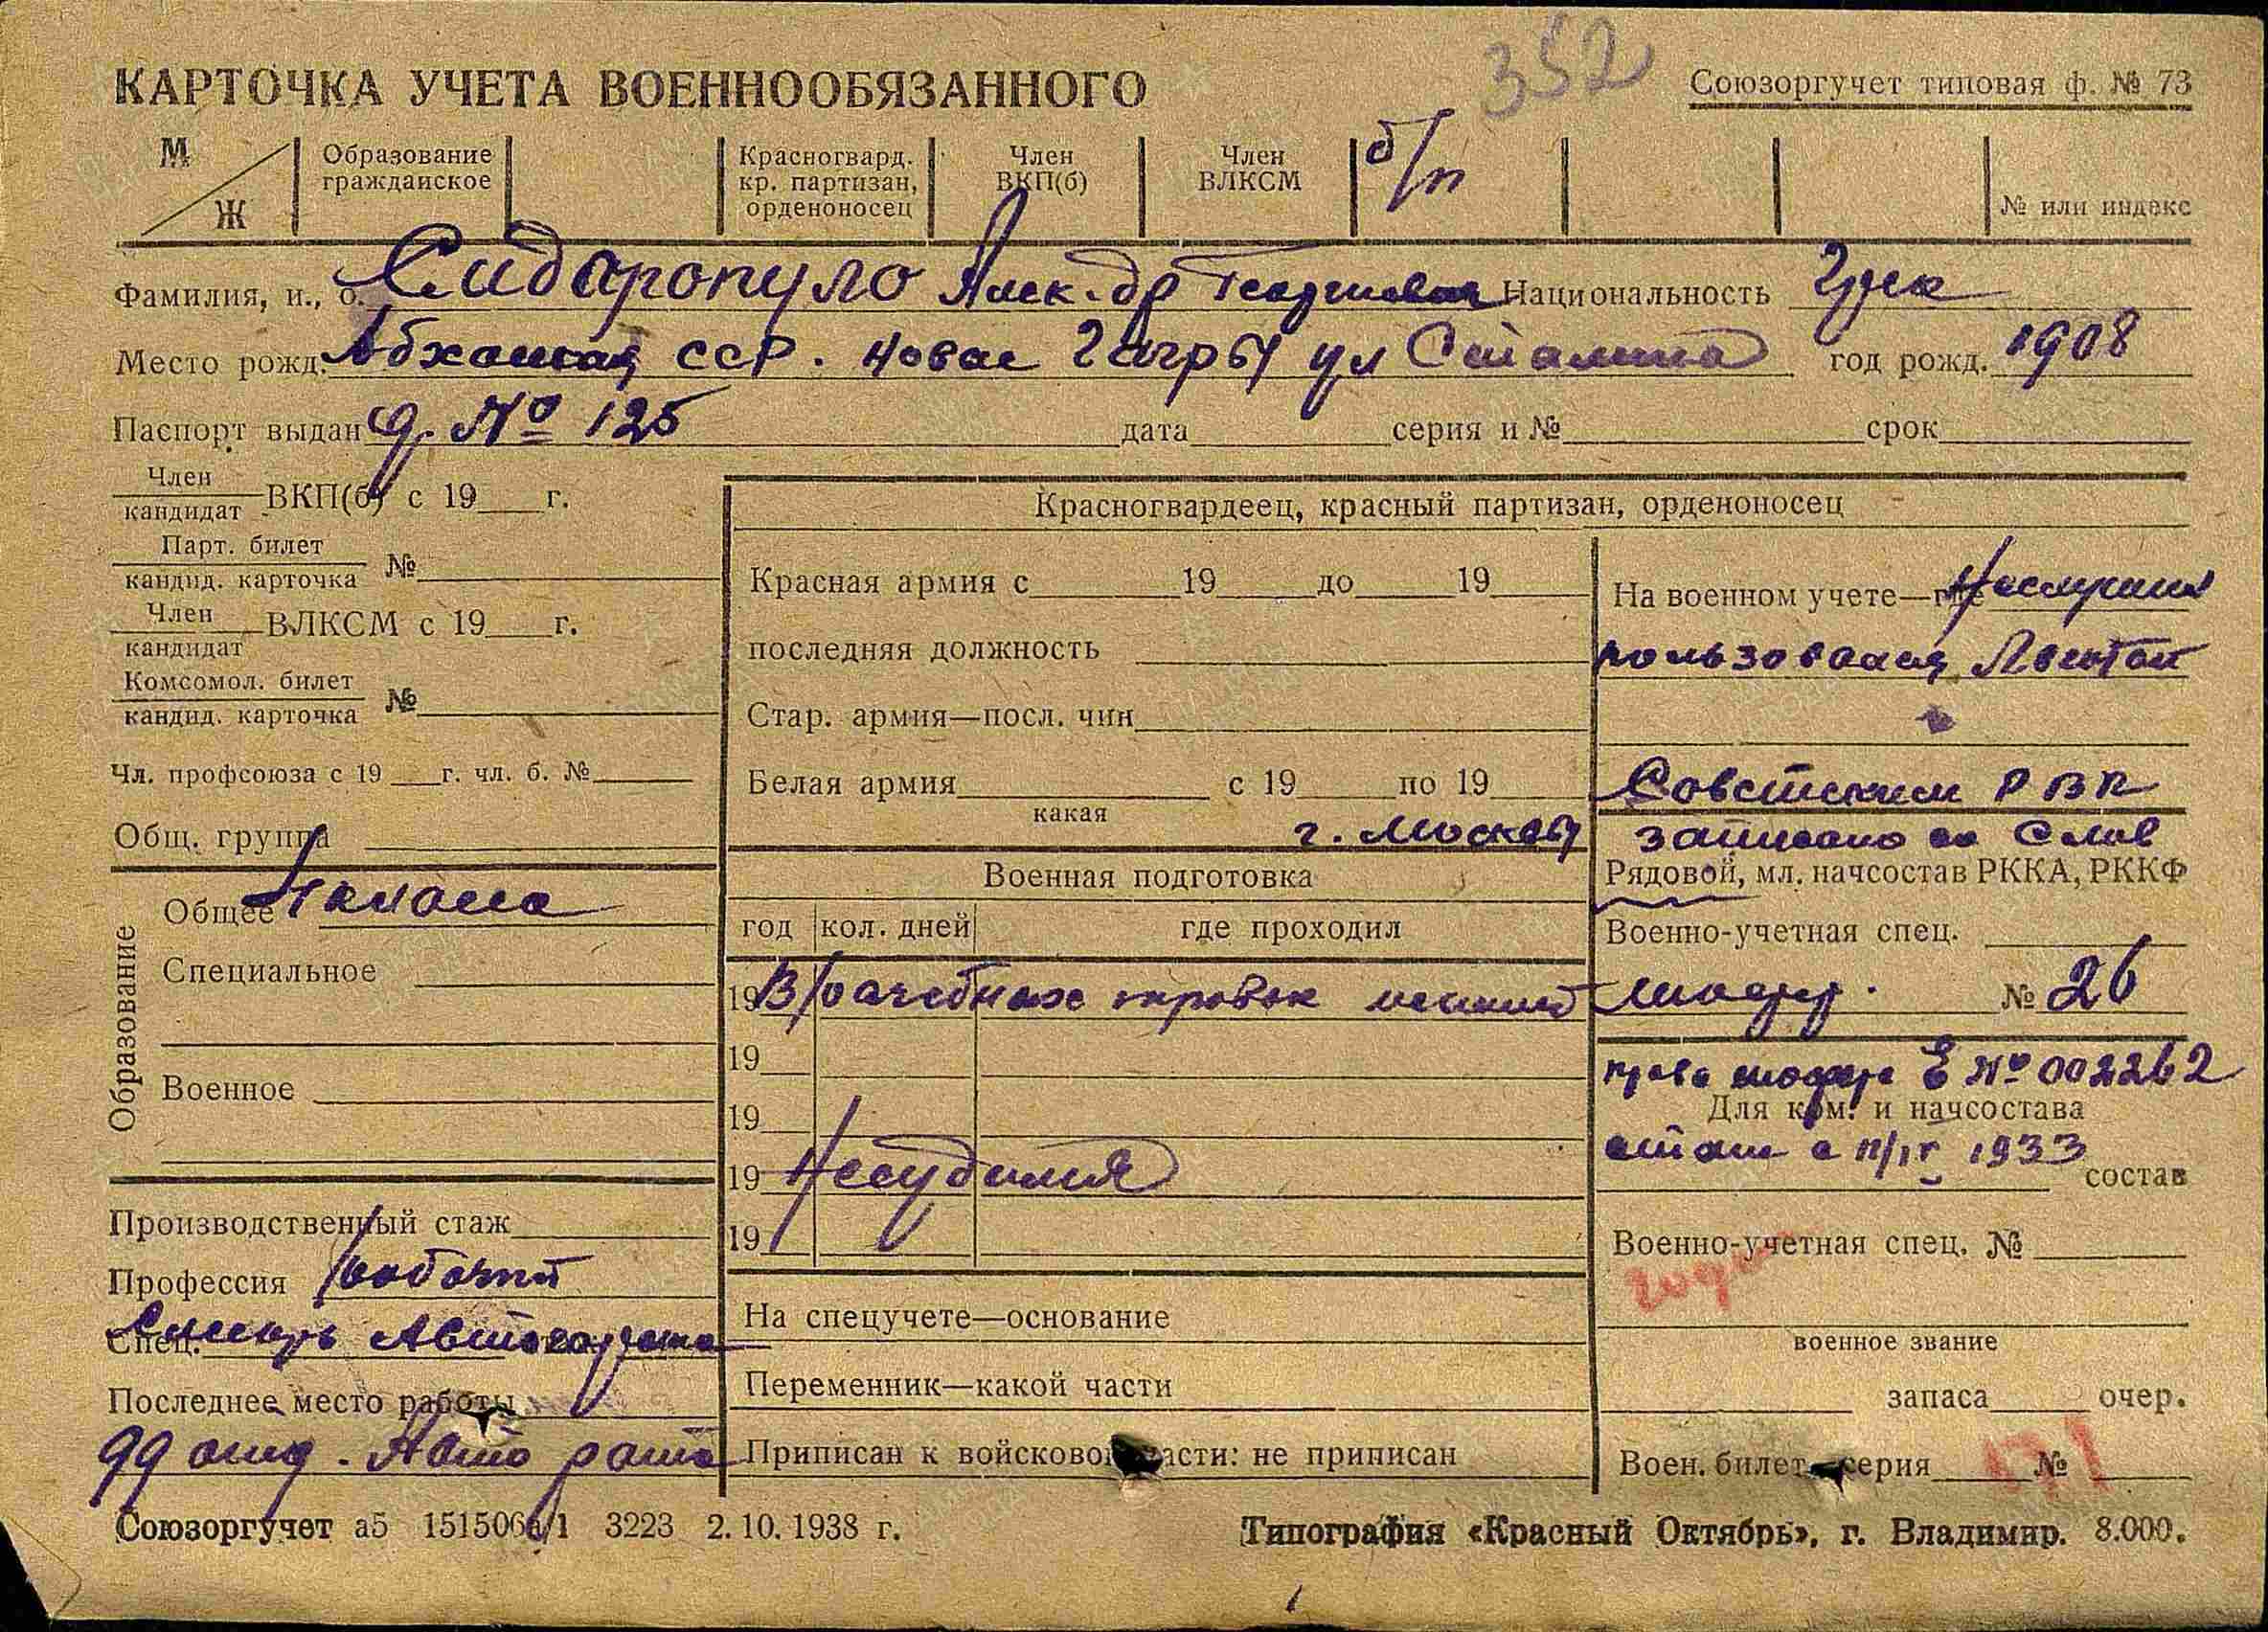 352
КАРТОЧКА УЧЕТА ВОЕННООБЯЗАННОГО
Союзоргучет типовая ф. № 73
М
Ж
Образование гражданское
Красногвард. кр. партизан, орденоносец
Член ВКП(б)
Член ВЛКСМ
б/п
№ или индекс
Фамилия, и., о. Сидаропуло Алек-др Георгиевич Национальность Грек
Место рожд. Абхазская ССР. Новые Гагры ул Сталина год рожд. 1908
Паспорт выдан д. № 125 дата серия и № срок
Член кандидат ВКП(б) с 19 г.
Парт. билет кандид. карточка №
Член кандидат ВЛКСМ с 19 г.
Комсомол. билет кандид. карточка №
Чл. профсоюза с 19 г. чл. б. №
Общ. группа
Образование
Общее 4 класса
Специальное
Военное
Производственный стаж
Профессия рабочий
Спец. Слесарь
Последнее место работы
99 отд. Авто рота
Красногвардеец, красный партизан, орденоносец
Красная армия с 19 до 19
последняя должность
Стар. армия—посл. чин
Белая армия с 19 по 19
какая
г. Москвы
Военная подготовка
год кол. дней где проходил
19 Врачебных
19
19
19 Несудимый
19
На спецучете—основание
Переменник—какой части
Приписан к войсковой части: не приписан
На военном учете—где Неслужил
пользовался Льготой
Советским РВК
записано со слов
Рядовой, мл. начсостав РККА, РККФ
Военно-учетная спец.
шофер. № 26
права шофера Е № 002262
Для ком. и начсостава
1933
состав
Военно-учетная спец. №
годен
военное звание
запаса очер.
Воен. билет серия №
Союзоргучет а5 151506а/1 3223 2.10.1938 г.
Типография «Красный Октябрь», г. Владимир. 8.000.